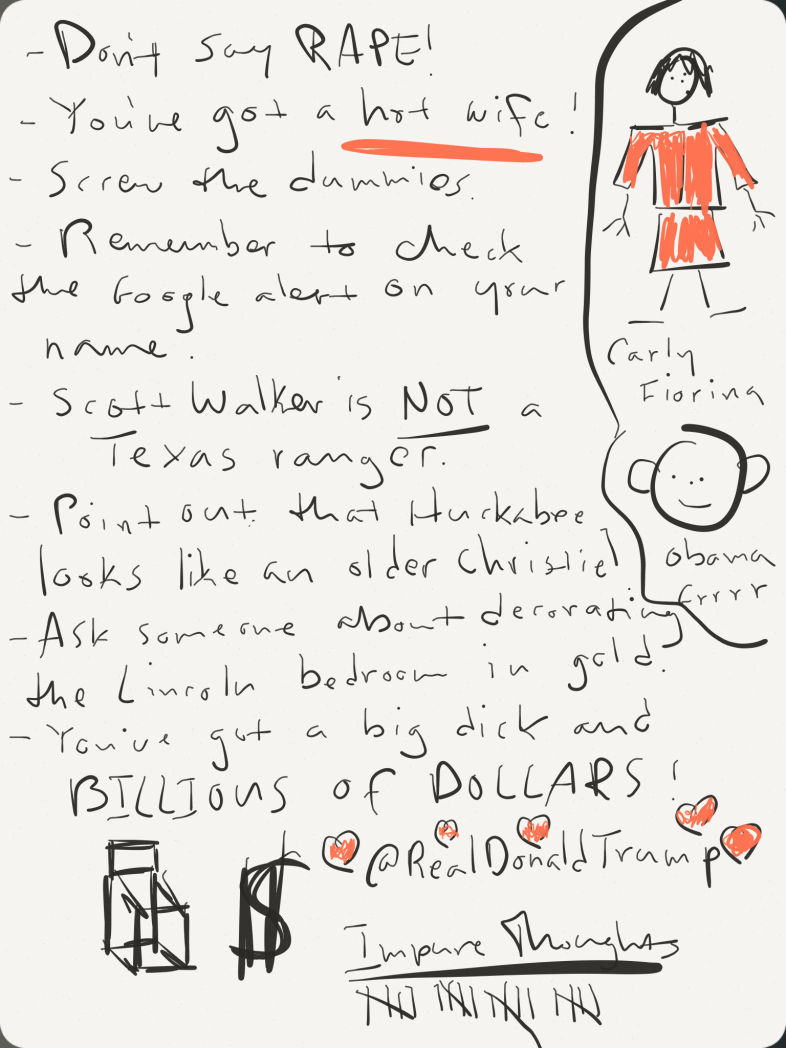 - Don't say RAPE!
- You've got a hot wife!
- Screw the dummies.
- Remember to check
the Google alert on your
name.
- Scott Walker is NOT a
Texas ranger.
- Point out that Huckabee
looks like an older Christie!
- Ask someone about decorating
the Lincoln bedroom in gold.
- You've got a big dick and
BILLIOUS of DOLLARS!
@RealDonaldTrump
Impure Thoughts
Carly
Fiorina
Obama
Grrrr